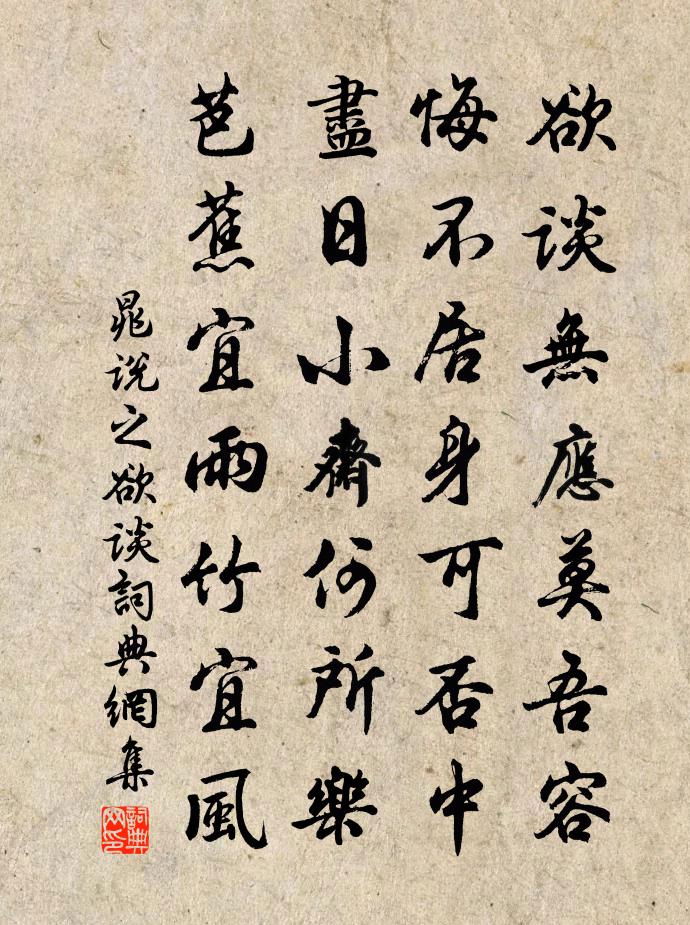 欲談無應莫吾容
悔不居身可否中
盡日小齋何所樂
芭蕉宜雨竹宜風
晁說之欲談詞典網集
詞典網印